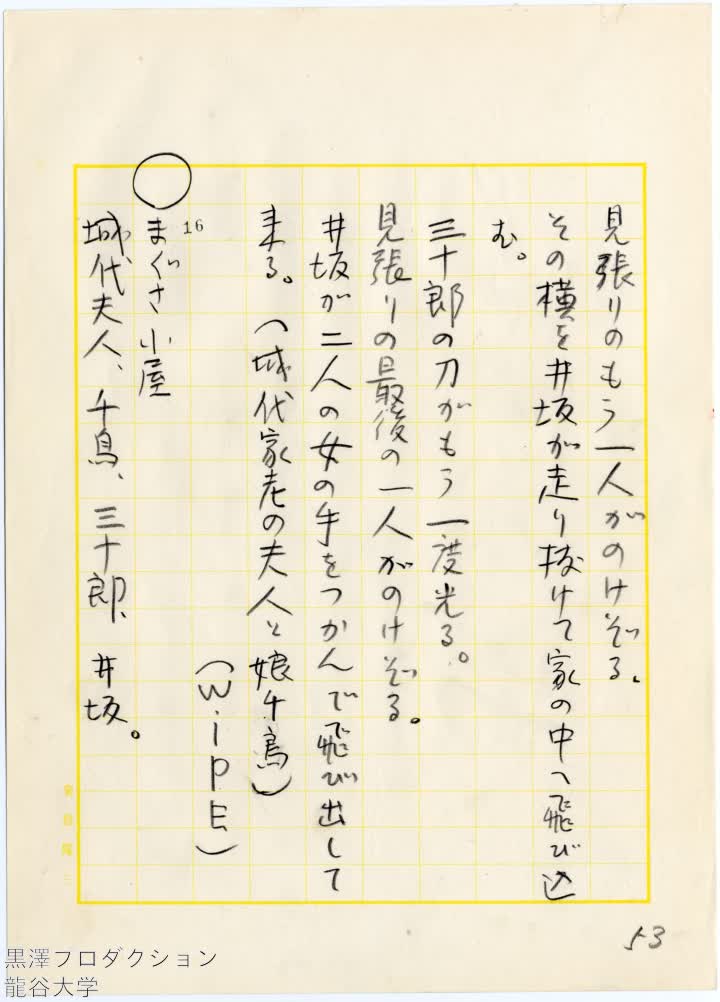 見張りのもう一人がのけぞる。
その横を井坂が走り抜けて家の中へ飛び込
む。
三十郎の刀がもう一度光る。
見張りの最後の一人がのけぞる。
井坂が二人の女の手をつかんで飛び出して
来る。(城代家老の夫人と娘千鳥)
(WiPE)
16
まぐさ小屋
城代夫人、千鳥、三十郎、井坂。
53
黒澤フロダクション
龍谷大学